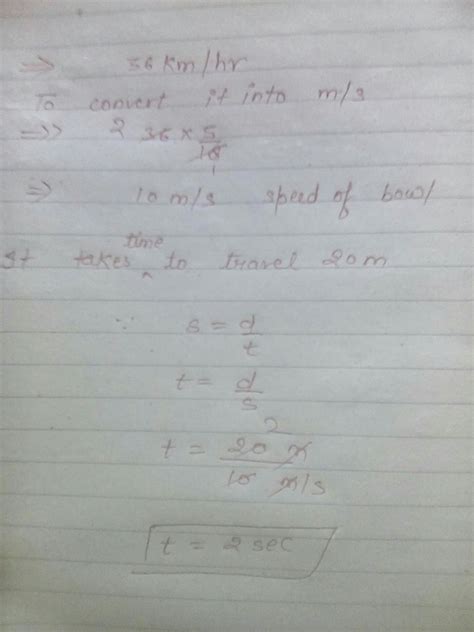 => 36 km/hr
To convert it into m/s
=>> 2 36 × 5/18 1
=> 10 m/s speed of bowl
It takes time to travel 20m
∵ s = d/t
t = d/s
t = 20 m / 10 m/s 2
t = 2 sec